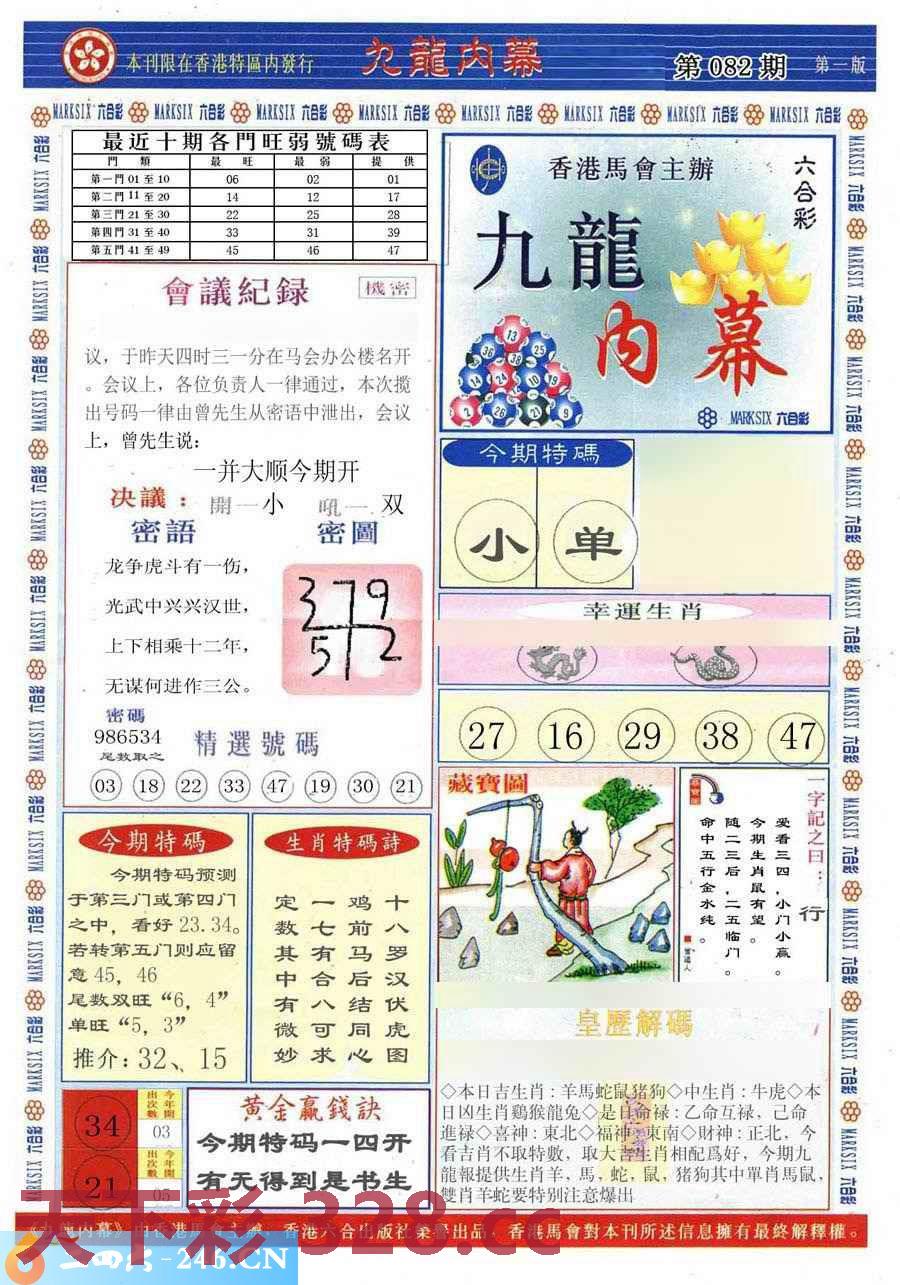 本刊限在香港特區內發行
九龍內幕
第 082 期
第一版
MARKSIX 六合彩
最近十期各門旺弱號碼表
門 類 最 旺 最 弱 提 供
第一門 01 至 10 06 02 01
第二門 11 至 20 14 12 17
第三門 21 至 30 22 25 28
第四門 31 至 40 33 31 39
第五門 41 至 49 45 46 47
會議紀録
機密
议，于昨天四时三一分在马会办公楼名开
。会议上，各位负责人一律通过，本次揽
出号码一律由曾先生从密语中泄出，会议
上，曾先生说：
一并大顺今期开
决議： 開一小 吼一 双
密語
龙争虎斗有一伤，
光武中兴兴汉世，
上下相乘十二年，
无谋何进作三公。
密圖
3 7 9
5 2
密碼
986534
尾数取之
精選號碼
03 18 22 33 47 19 30 21
香港馬會主辦
六合彩
九龍
內幕
13
36 38 25
14 24 10 19
2 26 27 9
MARKSIX 六合彩
今期特碼
小 单
幸運生肖
27 16 29 38 47
藏寶圖
一字記之曰：
行
爱看三四，小门小赢。
今期生肖鼠有望。
随二三后，二五临门。
命中五行金水纯。
今期特碼
今期特码预测
于第三门或第四门
之中，看好 23.34。
若转第五门则应留
意 45，46
尾数双旺“6，4”
单旺“5，3”
推介：32、15
生肖特碼詩
十八罗汉伏虎图
鸡前马后结同心
一七有合八可求
定数其中有微妙
34
今年開出次數
03
21
今年開出次數
05
黄金贏錢訣
今期特码一四开
有无得到是书生
皇歷解碼
◇本日吉生肖：羊馬蛇鼠猪狗◇中生肖：牛虎◇本
日凶生肖鷄猴龍兔◇是日命禄：乙命互禄，己命
進禄◇喜神：東北◇福神：東南◇財神：正北，今
看吉肖不取特數，取大吉生肖相配爲好，今期九
龍報提供生肖羊，馬，蛇，鼠，猪狗其中單肖馬鼠，
雙肖羊蛇要特别注意爆出
《九龍內幕》由香港馬會主辦，香港六合出版社榮譽出品，香港馬會對本刊所述信息擁有最終解釋權。
天下彩 328.cc
246.CN